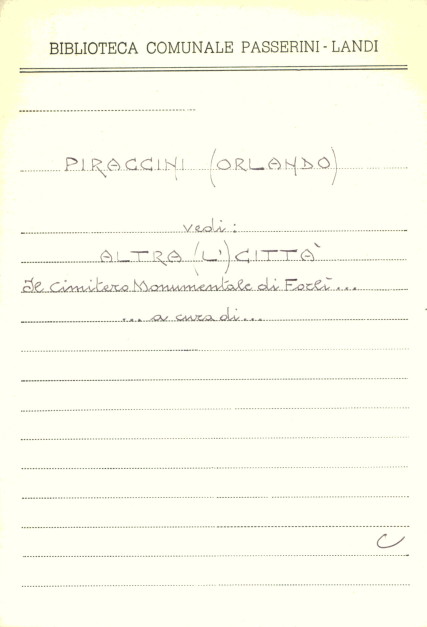 BIBLIOTECA COMUNALE PASSERINI-LANDI
PIRACCINI (ORLANDO)
vedi:
ALTRA (L') CITTÀ
Il Cimitero Monumentale di Forlì...
... a cura di...
C